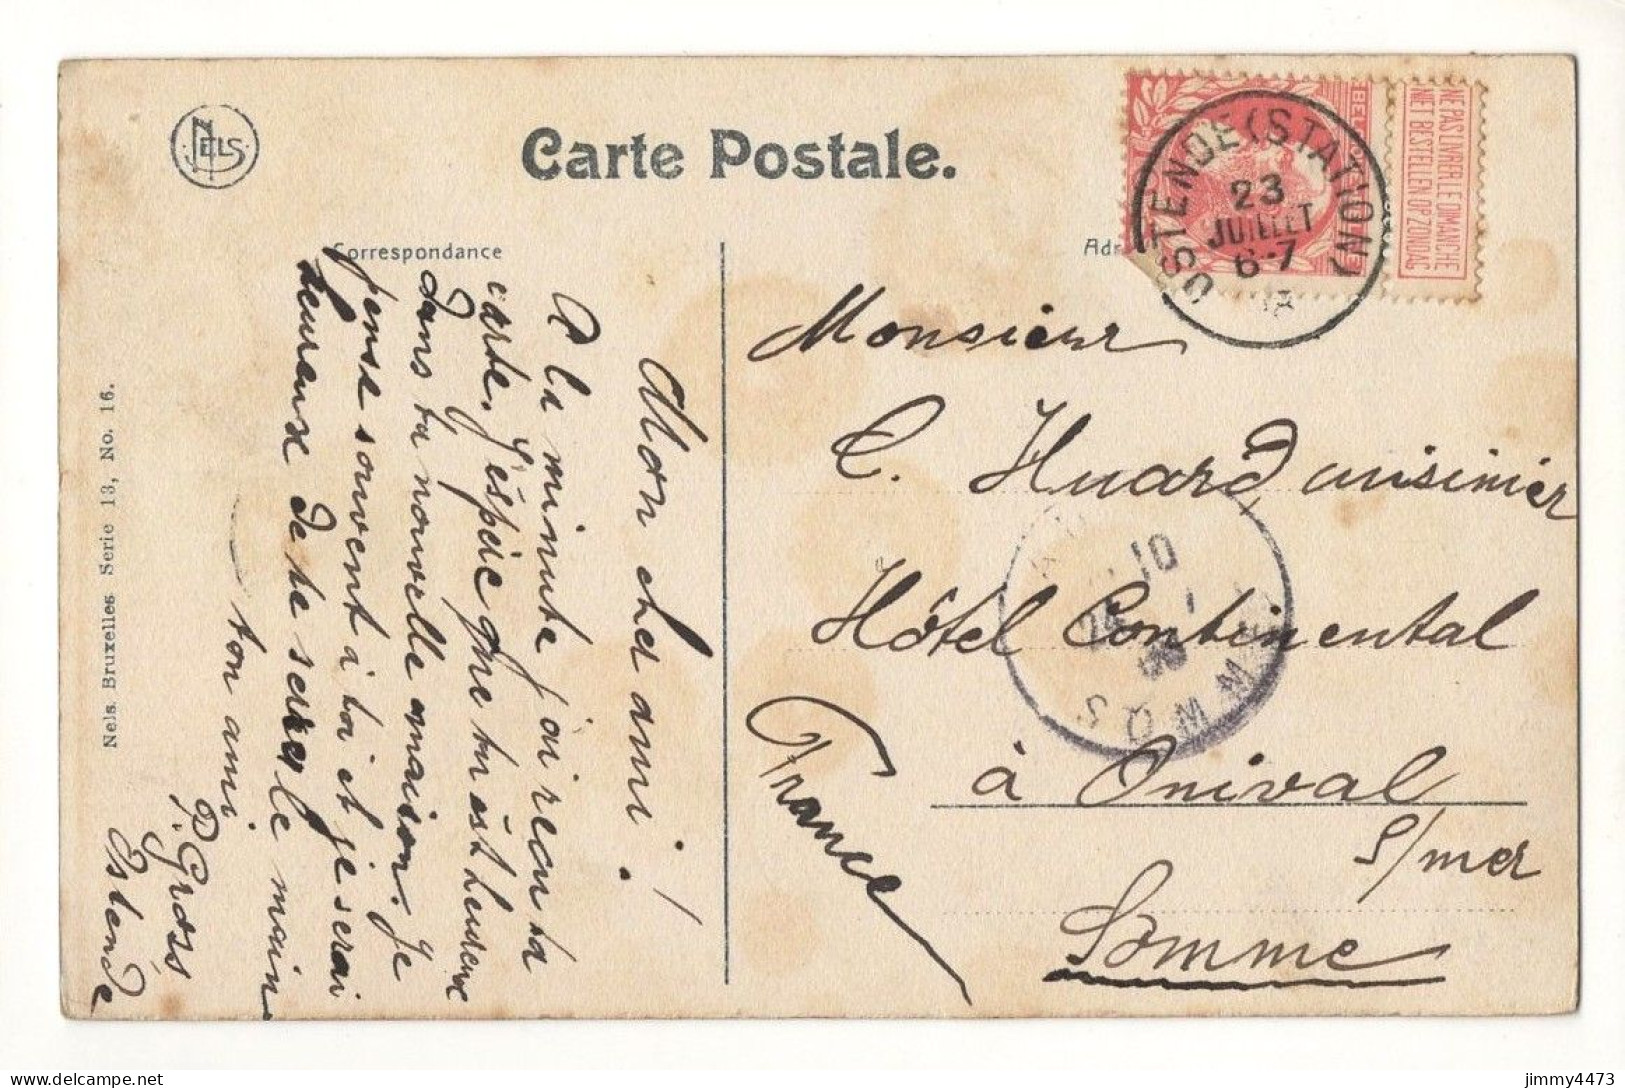 NELS
Carte Postale.
Correspondance
Adr
BE
NE PAS LIVRER LE DIMANCHE
NIET BESTELLEN OP ZONDAG
OSTENDE (STATION)
23
JUILLET
6-7
Nels. Bruxelles Serie 13, No. 16.
Mon cher ami !
A la minute j'ai recu ta
carte. J'éspére que tu est heureux
dans ta nouvelle maison. Je
pense souvent à toi et je serai
heureux de te serrer le main
ton ami
P. Gros
Ostende
Monsieur
C. Huard cuisinier
Hôtel Continental
à Onival
s/mer
Somme
France
10
24